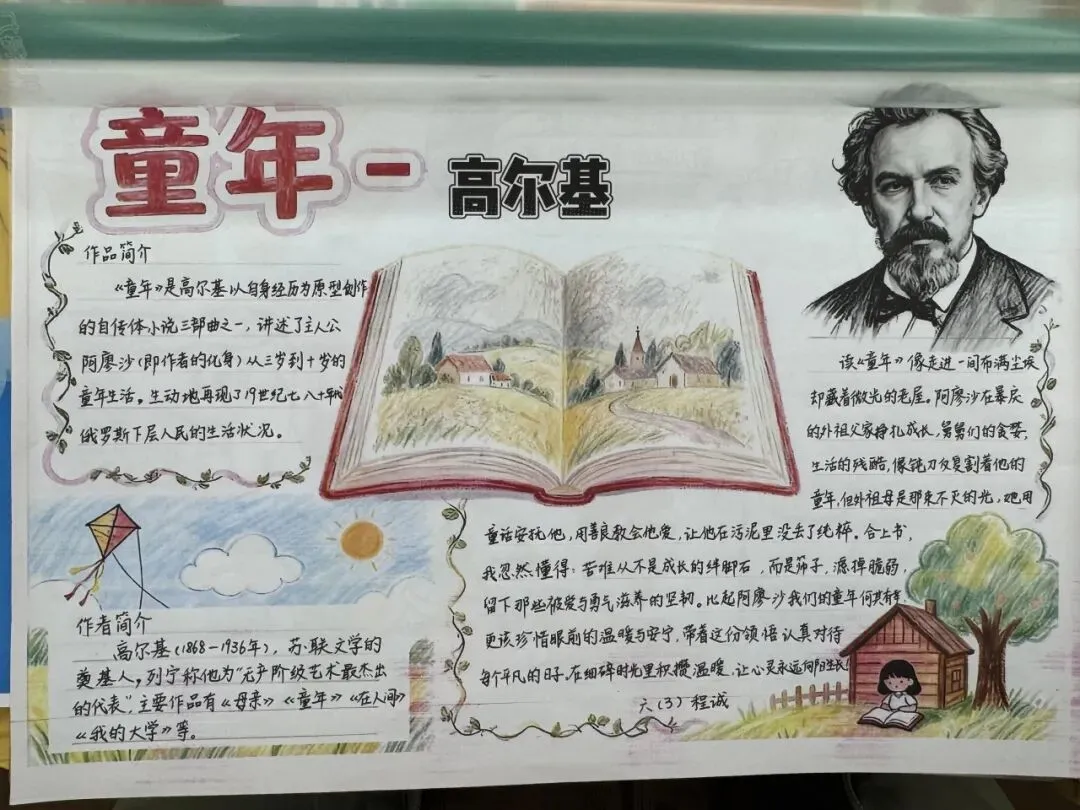 童年-高尔基
作品简介
《童年》是高尔基以自身经历为原型创作
的自传体小说三部曲之一，讲述了主人公
阿廖沙（即作者的化身）从三岁到十岁的
童年生活。生动地再现了19世纪七八十年代
俄罗斯下层人民的生活状况。
作者简介
高尔基（1868-1936年），苏联文学的
奠基人，列宁称他为“无产阶级艺术最杰出
的代表”，主要作品有《母亲》《童年》《在人间》
《我的大学》等。
读《童年》像走进一间布满尘埃
却藏着微光的老屋。阿廖沙在暴戾
的外祖父家挣扎成长，舅舅们的贪婪，
生活的残酷，像钝刀反复割着他的
童年，但外祖母是那束不灭的光，她用
童话安抚他，用善良教会他爱，让他在污泥里没丢了纯粹。合上书，
我忽然懂得：苦难从不是成长的绊脚石，而是筛子，滤掉脆弱，
留下那些被爱与勇气滋养的坚韧。比起阿廖沙我们的童年何其有幸
更该珍惜眼前的温暖与安宁，带着这份领悟认真对待
每个平凡的日子，在细碎时光里积攒温暖，让心灵永远向阳生长！
六（3）程诚